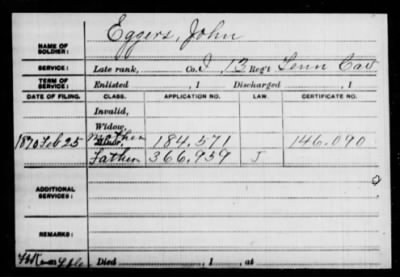 Eggers, John
NAME OF SOLDIER:
SERVICE: Late rank, Co. I, 13 Reg't Tenn Cav
TERM OF SERVICE: Enlisted , 1 Discharged , 1
DATE OF FILING. CLASS. APPLICATION NO. LAW. CERTIFICATE NO.
Invalid,
Widow,
1870 Feb 25 Mother 184.571 146.090
Father 366.959 J
ADDITIONAL SERVICES:
REMARKS:
Died , 1 , at